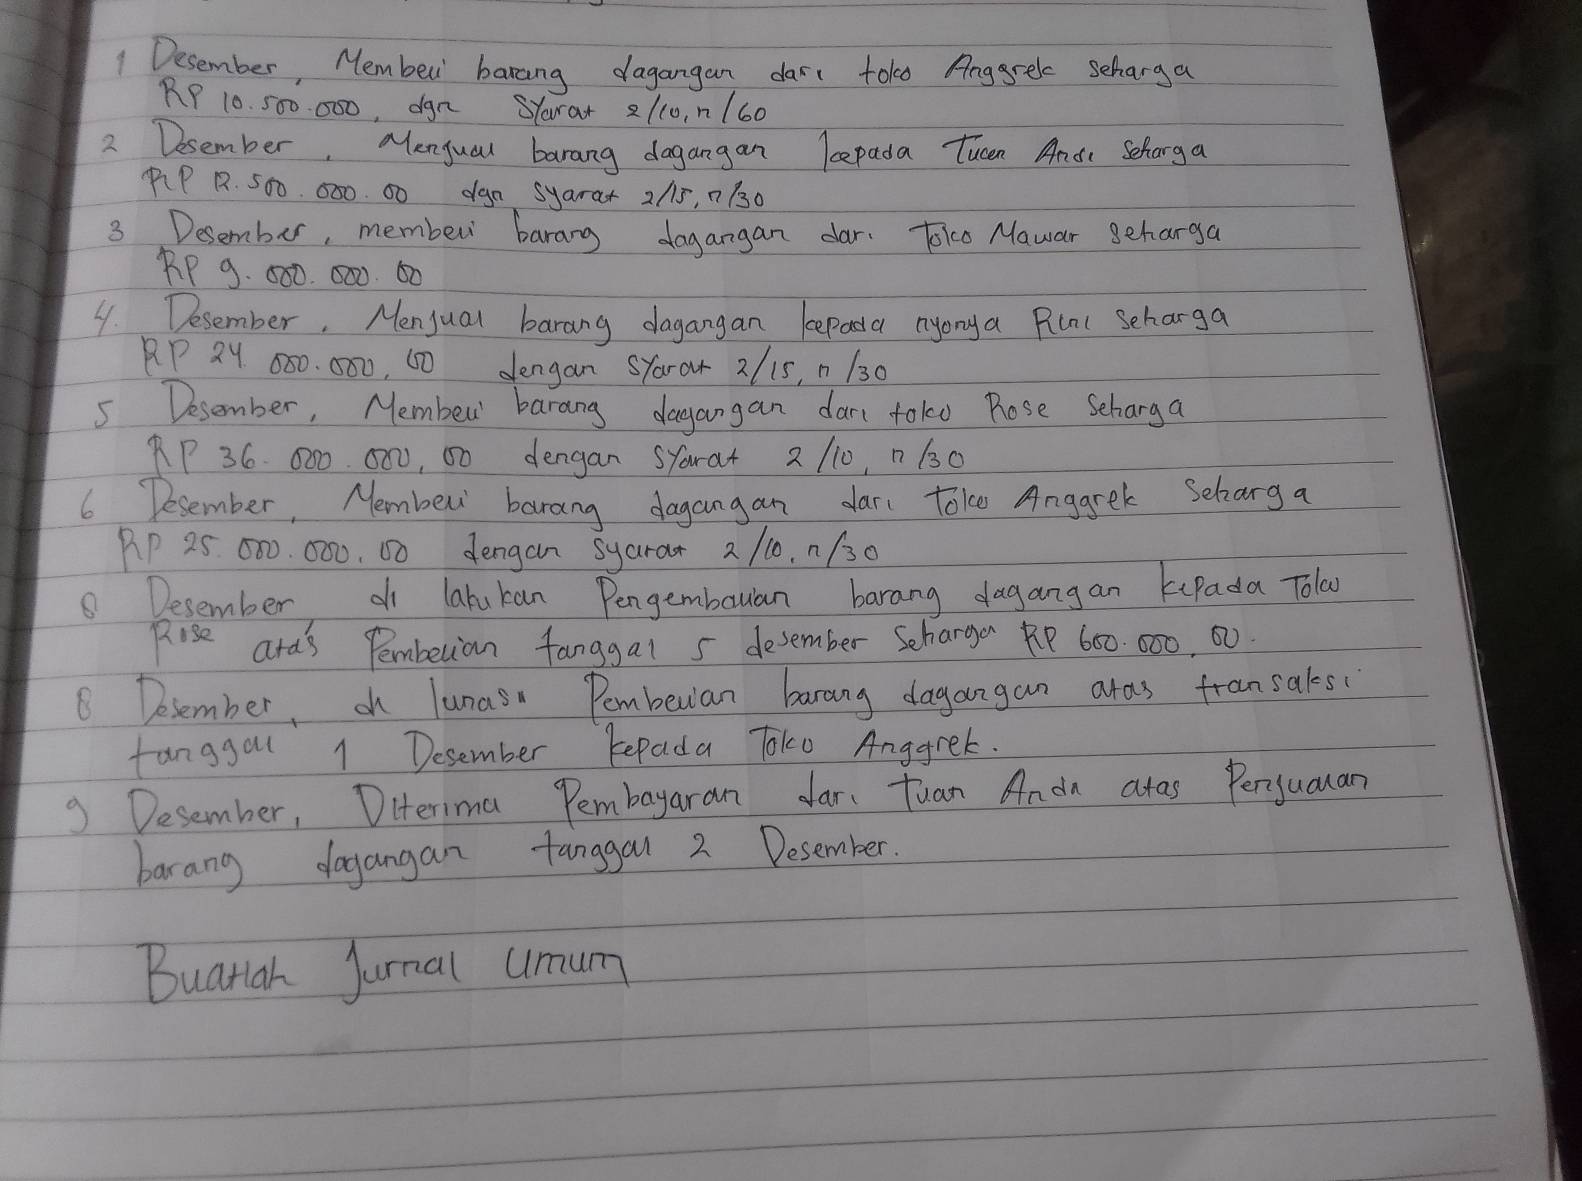 1 Desember, Membeli barang dagangan dari toko Anggrek seharga
RP 10.500.000, dgn Syarat 2/10, n/60
2 Desember, Menjual barang dagangan kepada Tuan Andi Seharga
RP 12.500.000.00 dgn syarat 2/15, n/30
3 Desember, membeli barang dagangan dari Toko Mawar seharga
RP 9.000.000.00
4. Desember, Menjual barang dagangan kepada nyonya Rini Seharga
RP 24.000.000,00 dengan syarat 2/15, n/30
5 Desember, Membeli barang dagangan dari toko Rose Seharga
RP 36.000.000,00 dengan syarat 2/10, n/30
6 Desember, Membeli barang dagangan dari Toko Anggrek Seharga
RP 25.000.000,00 dengan syarat 2/10, n/30
8 Desember di lakukan Pengembalian barang dagangan kepada Toko
Rose atas Pembelian tanggal 5 desember Seharga RP 600.000,00.
8 Desember, di lunasi Pembelian barang dagangan atas transaksi
tanggal 1 Desember kepada Toko Anggrek.
9 Desember, Diterima Pembayaran dari Tuan Andi atas Penjualan
barang dagangan tanggal 2 Desember.
Buatlah Jurnal Umum